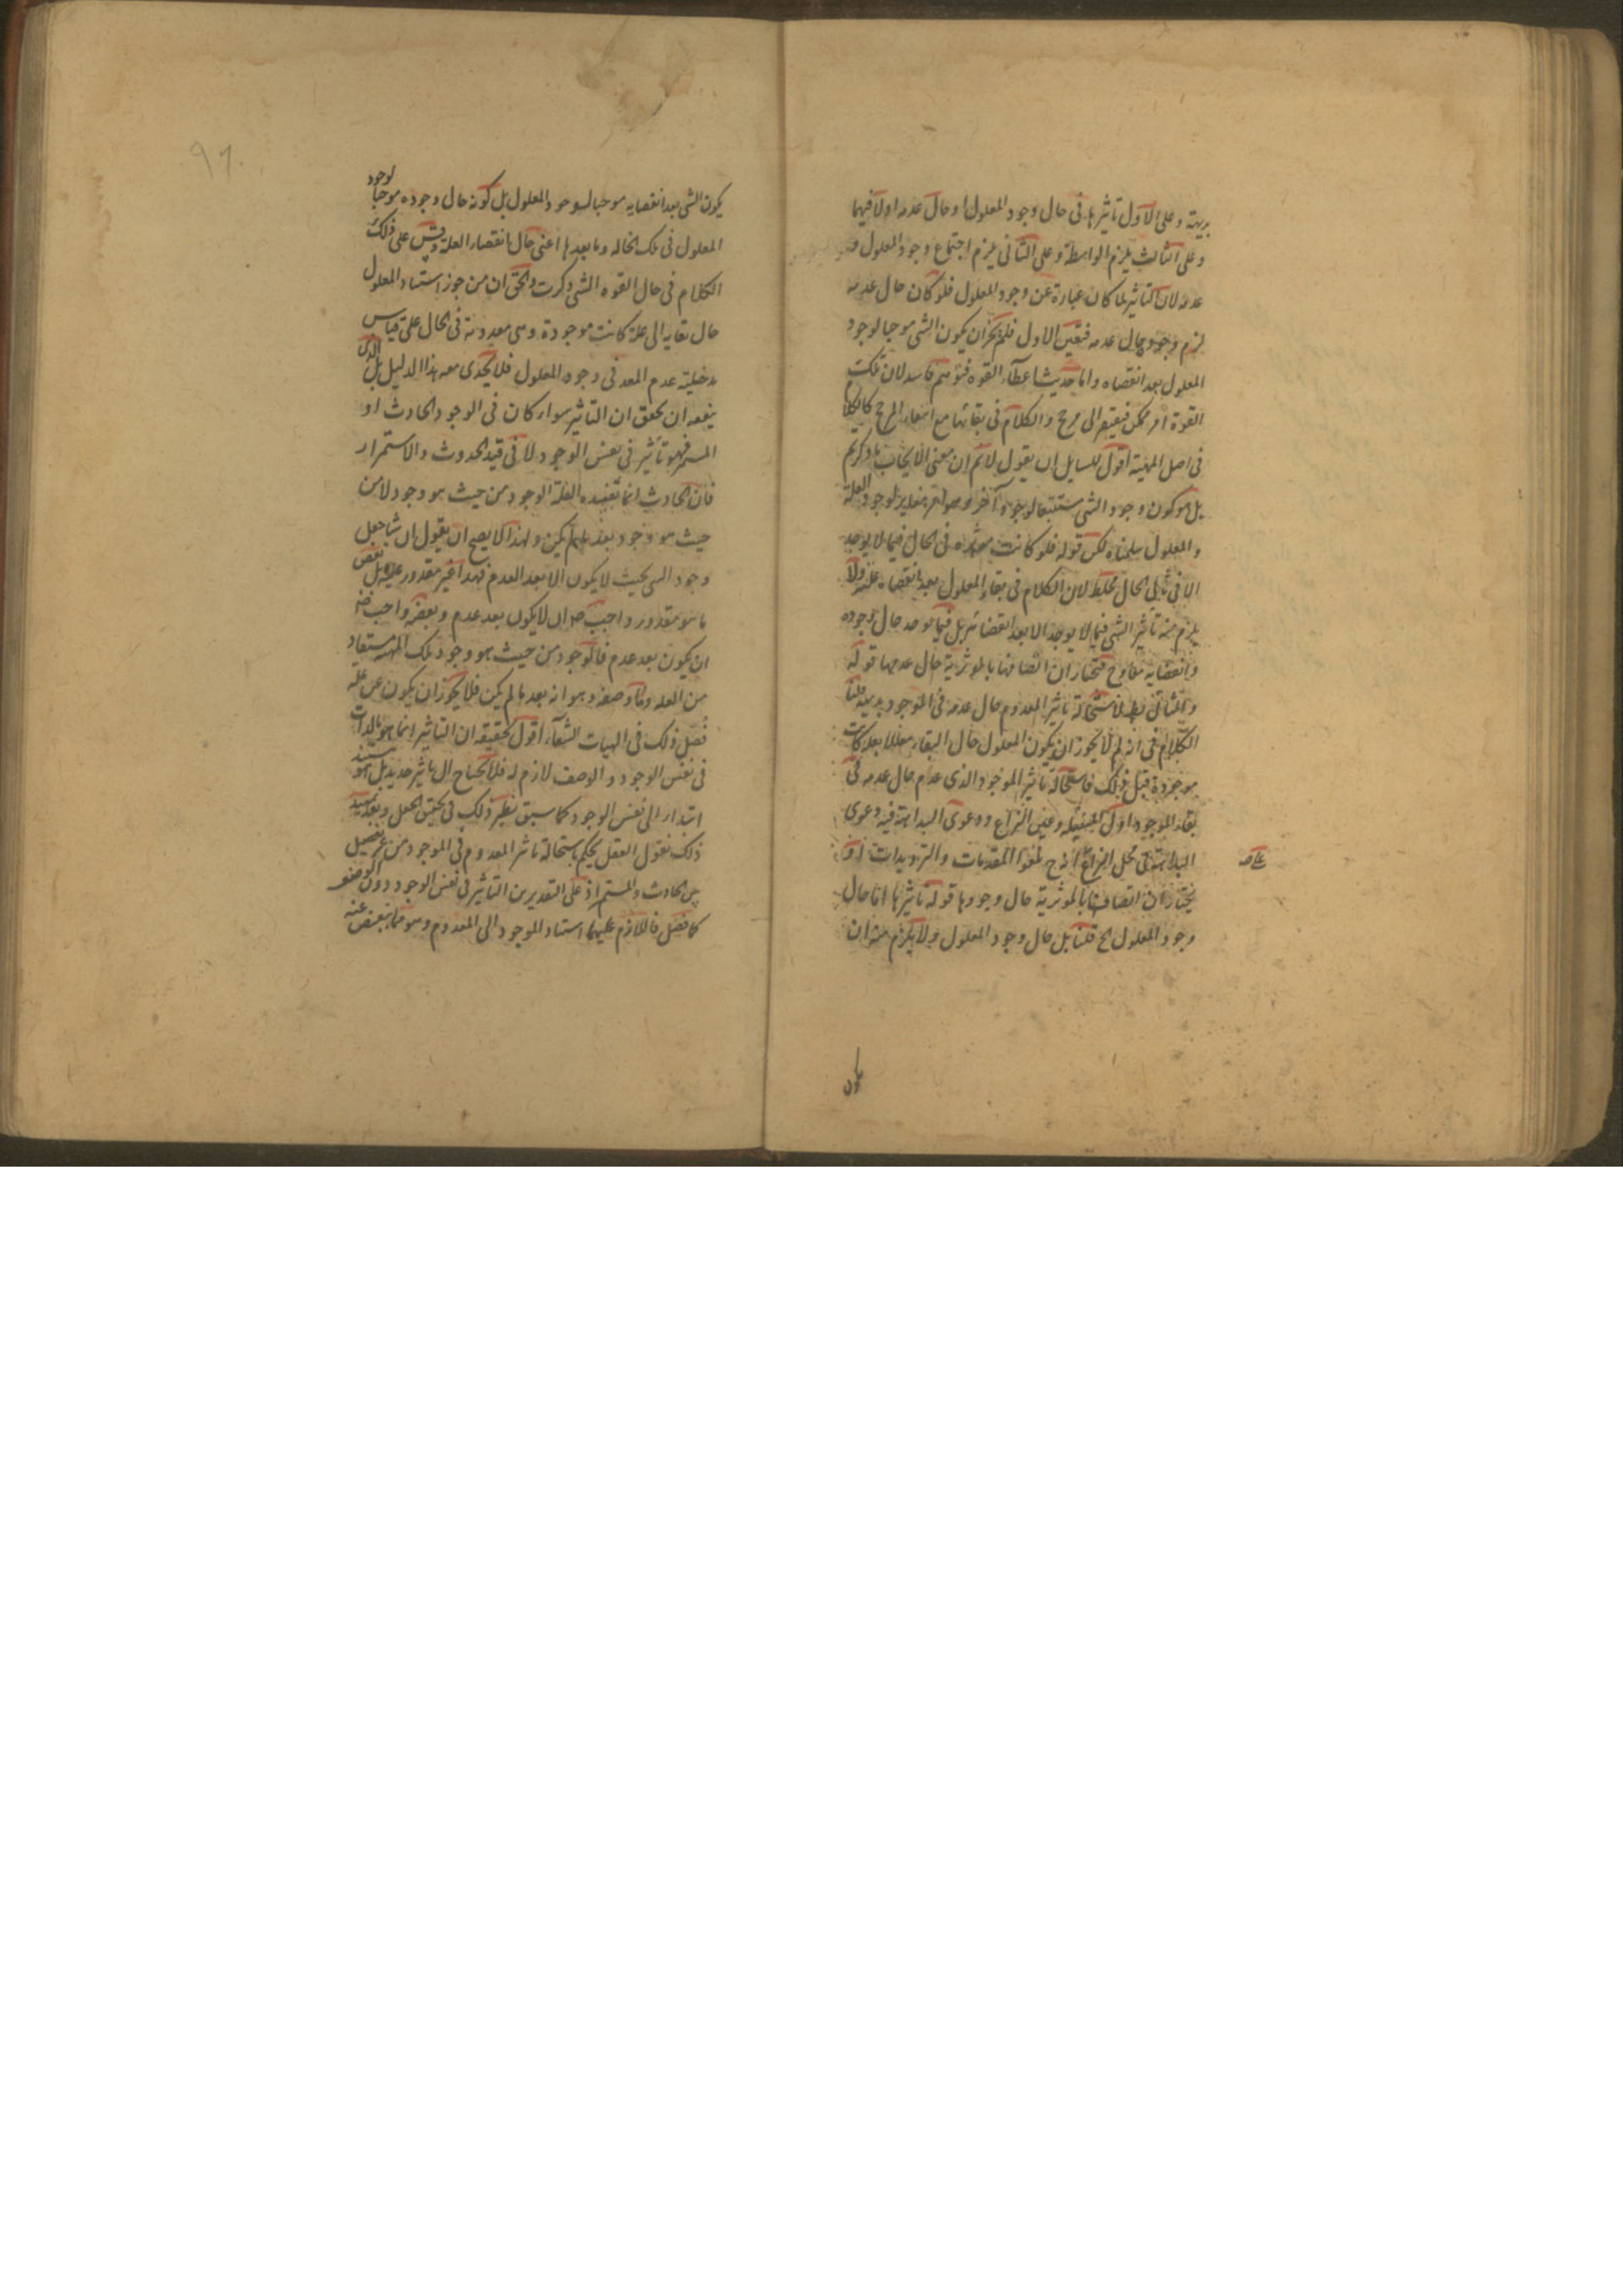 بديهية وعلى الاول تأثيرها فى حال وجود المعلول او حال عدمه اولا فيهما
وعلى الثالث يلزم الواسطة وعلى الثانى يلزم اجتماع وجود المعلول و
عدمه لان التأثير لما كان عبارة عن وجود المعلول فلو كان حال عدمه
لزم وجوده حال عدمه فتعين الاول فلم يجز ان يكون الشى موجبا لوجود
المعلول بعد انقضاه واما حديث اعطاء القوه فتوهم فاسد لان تلك
القوة امر ممكن فيفتقر الى مرجح والكلام فى بقائها مع انتفاء المرجح كالكلام
فى اصل المهية اقول للسايل ان يقول لانم ان معنى الايجاب ما ذكرتم
بل هو كون وجود الشى مستتبعا لوجود آخر وهو امر مغاير لوجود العلة
والمعلول سلمناه لكن قوله فلو كانت مؤثره فى الحال فيما لا يوجد
الا فى ثانى الحال مخلط لان الكلام فى بقاء المعلول بعد انقضاء علته ولا
يلزم منه تأثير الشى فيما لا يوجد الا بعد انقضائه بل فيما يوجد حال وجوده
وانقضايه معا وح فنختار ان اتصافها بالمؤثرية حال عدمها قوله
والثانى بط لاستحالة تاثير المعدوم حال عدمه فى الموجود بديهية قلنا
الكلام فى انه لم لا يجوز ان يكون المعلول حال البقاء معللا بعلة كانت
موجودة قبل ذلك فاستحالة تاثير الموجود الذى عدم حال عدمه فى
بقاء الموجود اول المسئلة وعين النزاع ودعوى البداهة فيه دعوى
البداهة فى محل النزاع اذ ح لغوا المقدمات والترديدات او
على
نختار ان اتصافها بالمؤثرية حال وجودها قوله تاثيرها اما حال
وجود المعلول الخ قلنا بل حال وجود المعلول ولا يلزم منه ان
يكون
يكون الشى بعد انقضايه موجبا لوجود المعلول بل كونه حال وجوده موجبا لوجود
المعلول فى تلك الحاله وما بعدها اعنى حال انقضاء العلة وقس على ذلك
الكلام فى حال القوه التى ذكرت والحق ان من جوز استناد المعلول
حال بقايه الى علة كانت موجودة وهى معدومة فى الحال على قياس
مدخلية عدم المعد فى وجود المعلول فلا يجدى معه هذا الدليل بل الذى
ينفعه ان يحقق ان التاثير سواء كان فى الوجود الحادث او
المستمر فهو تأثير فى نفس الوجود لا فى قيد الحدوث والاستمرار
فان الحادث انما تفيده العلة الوجود من حيث هو وجود لا من
حيث هو وجود بعد مالم يكن ولهذا لا يصح ان يقول ان شيئا جعل
وجود الشى بحيث لا يكون الا بعد العدم فهذا غير مقدور عليه بل بعض
ما هو مقدور واجب ان لا يكون بعد عدم وبعضه واجب
ان يكون بعد عدم فالوجود من حيث هو وجود تلك المهية مستفاد
من العلة واما وصفه وهو انه بعد مالم يكن فلا يجوز ان يكون عن علة
فصل ذلك فى الهيات الشفآء اقول تحقيقه ان التاثير انما هو بالذات
فى نفس الوجود والوصف لازم له فلا يحتاج الى تاثير جديد بل هو مستند
ابتداء الى نفس الوجود كما سبق نظير ذلك فى تحقيق الجعل وبعد تمهيد
ذلك نقول العقل يحكم باستحالة تاثير المعدوم فى الموجود من غير تفصيل
بين الحادث والمستمر اذ على التقديرين التأثير فى نفس الوجود دون الوصف
كما فصل فاللازم عليهما استناد الموجود الى المعدوم وهو مما ينقبض عنه